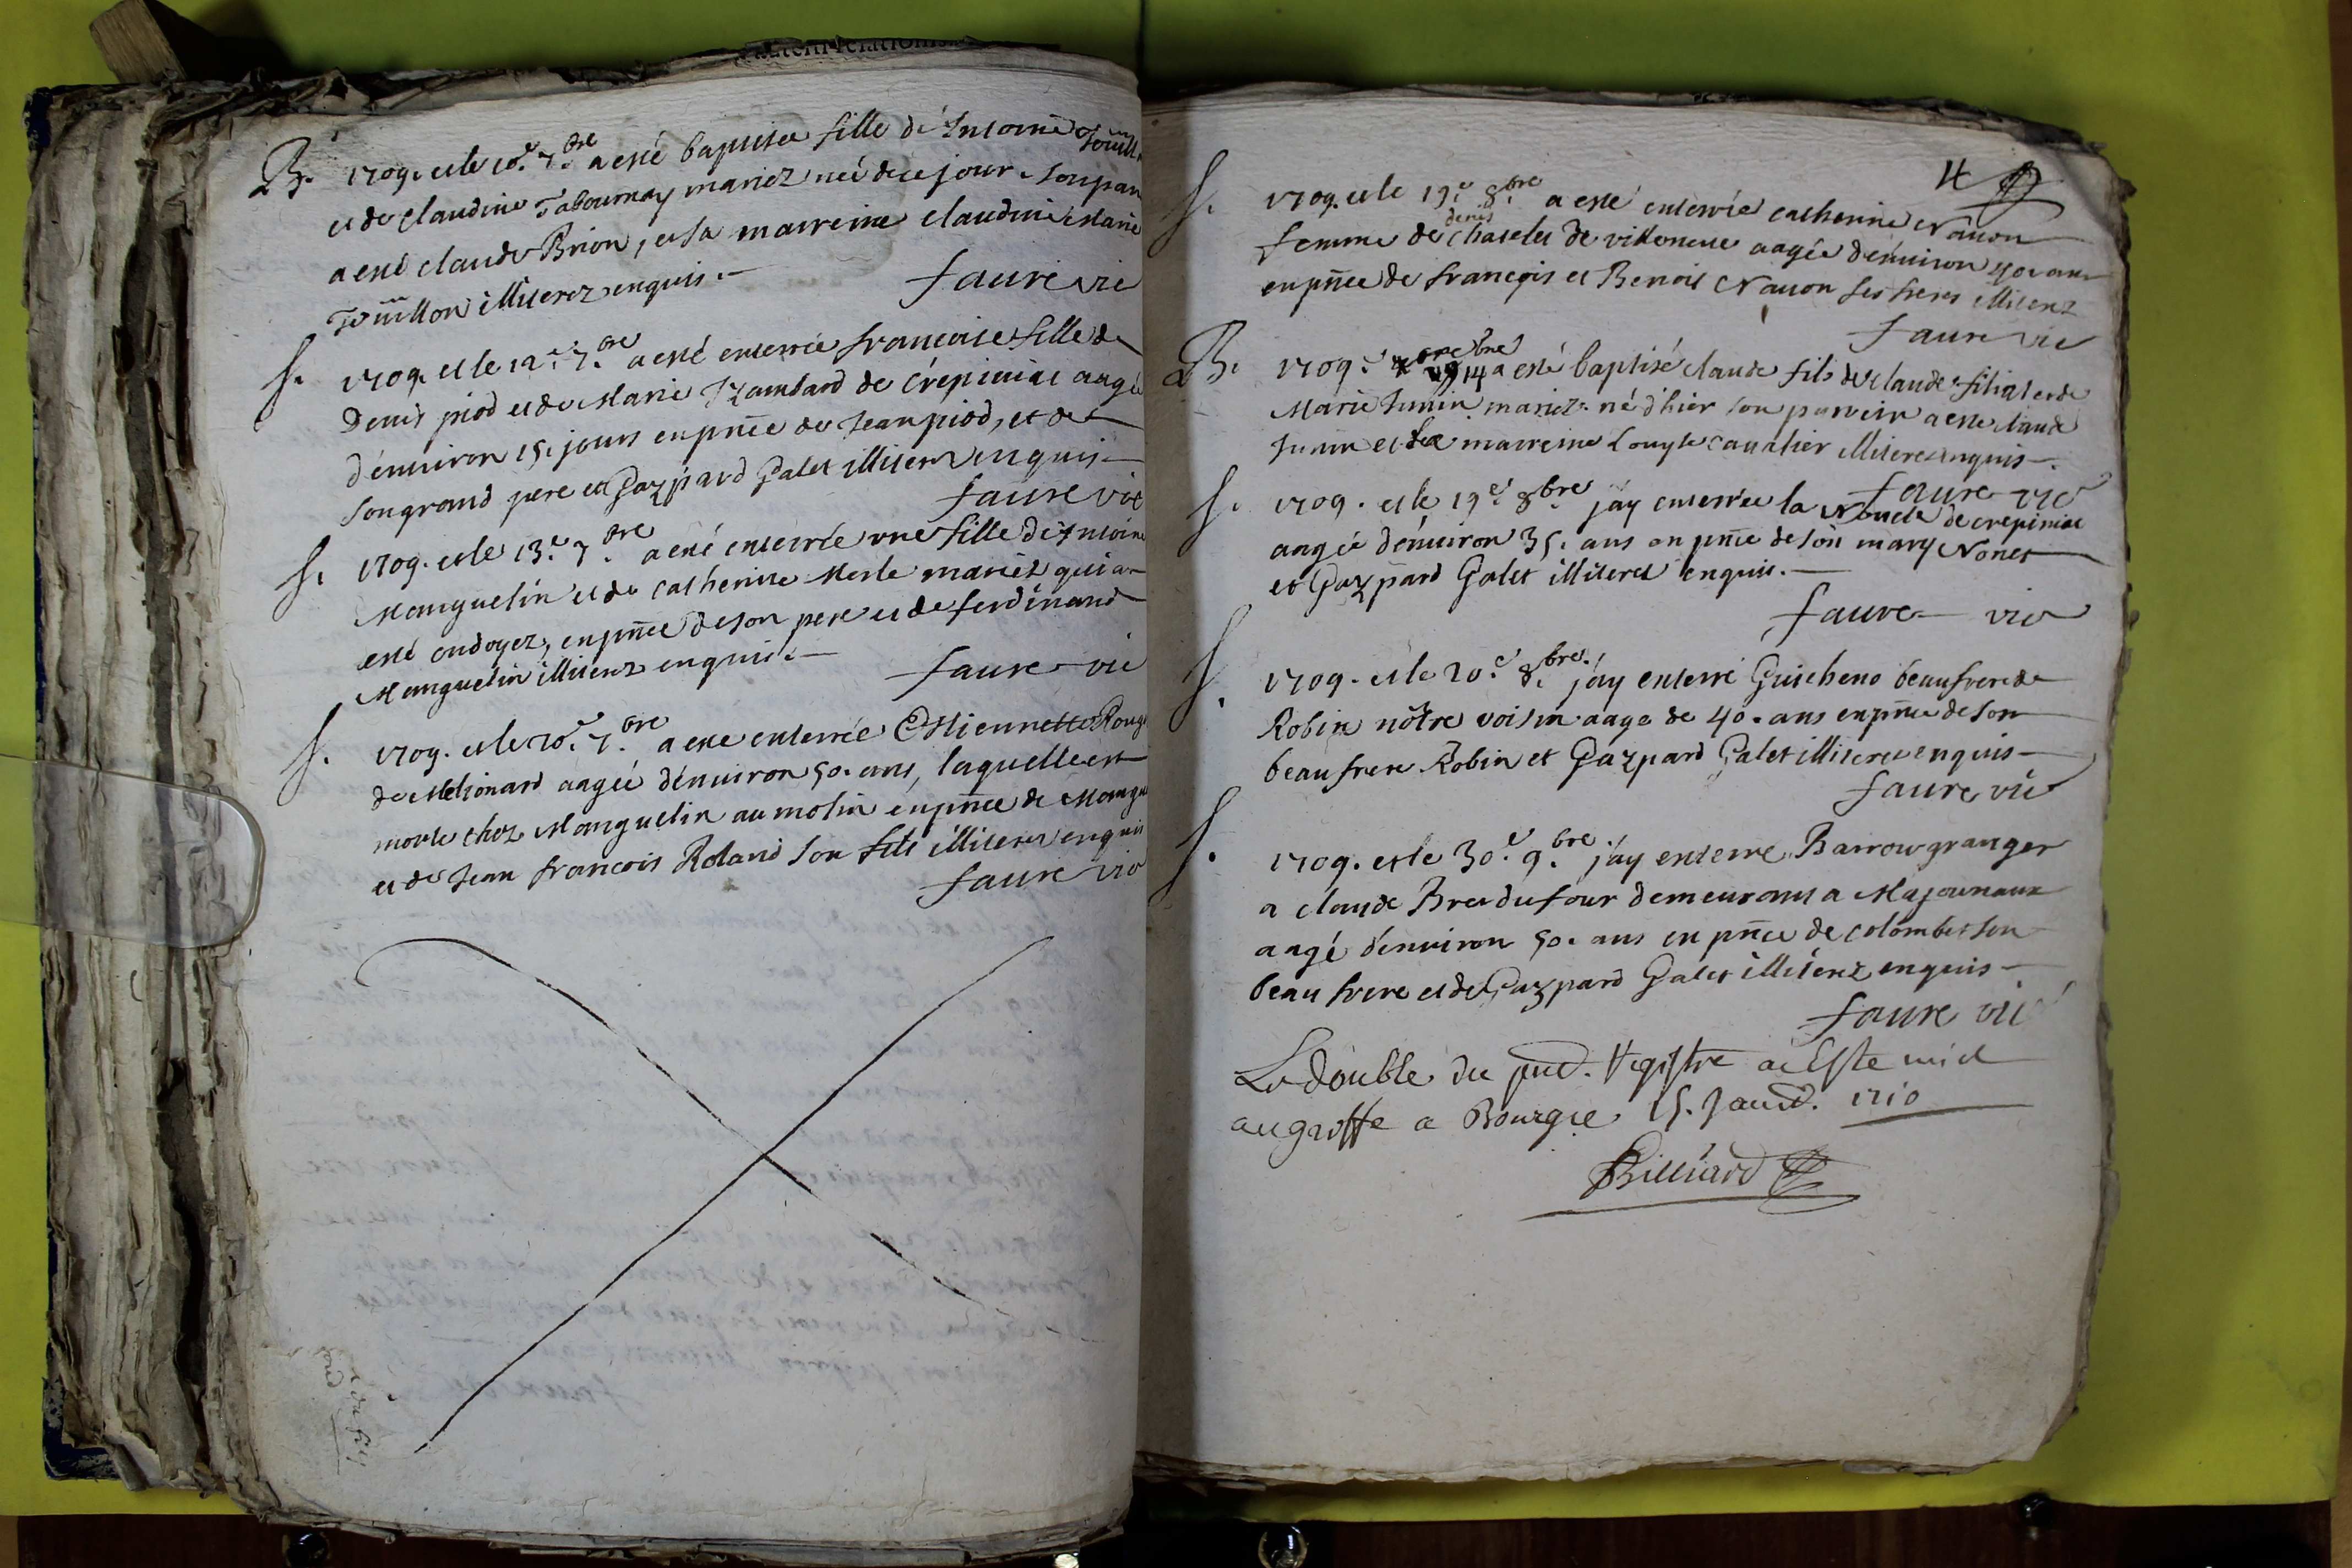 B. 1709. et le 10.e 7.bre a esté baptisée fille d'Antoine
et de Claudine Tabournay mariez née de ce jour. son par
a esté claude Brion, et sa marreine claudine Marie
Touillon illiterez enquis.
faure vic
S. 1709. et le 12.e 7.bre a esté enterrée francoise fille de
Denis piod et de Marie de Crépiniac aagée
d'environ 15. jours en pñce de Jean piod, et de
son grand pere et Gazpard Galet illiterez enquis
faure vic
S. 1709. et le 13.e 7.bre a esté enterrée une fille d'Antoine
Manguelin et de Catherine Merle mariez qui a
esté ondoyez, en pñce de son pere et de ferdinand
Manguelin illiterez enquis.
faure vic
S. 1709. et le 20.e 7.bre a esté enterrée Estiennette Rouge
de Melionard aagée d'environ 50. ans, laquelle est
morte chez Manguelin au molin en pñce de Mangu
et de Jean francois Roland son fils illiterez enquis
faure vic
4
S. 1709. et le 19.e 8.bre a esté enterrée catherine Navion
denis
femme de Chatelet de villeneuve aagée d'environ 40. ans
en pñce de francois et Benoit Navion ses freres illiterz
faure vic
B. 1709. 14 a esté baptisé claude fils de claude filiat et de
Marie Junin mariez. né d'hier son parrein a esté claude
Junin et la marreine Louyse cavalier illitere enquis.
faure vic
S. 1709. et le 19.e 8.bre j'ay enterrée la Novete de crepiniac
aagée d'environ 35. ans en pñce de son mary Novet
et Gazpard Galet illiteret enquis.
faure vic
S. 1709. et le 20.e 8.bre. j'ay enterré Guicheno beaufrere de
Robin nôtre voisin aagé de 40. ans en pñce de son
beaufrere Robin et Gazpard Galet illiterez enquis
faure vic
S. 1709. et le 30.e 9.bre j'ay enterré Barrow granger
a claude Brevdufour demeurant a Majornaux
aagé d'environ 50. ans en pñce de colombet son
beau frere et de Gazpard Galet illiterez enquis
faure vic
Le double du pnt. Registre a Este mid
au greffe a Bourg le 15. Janv. 1710
Billiard